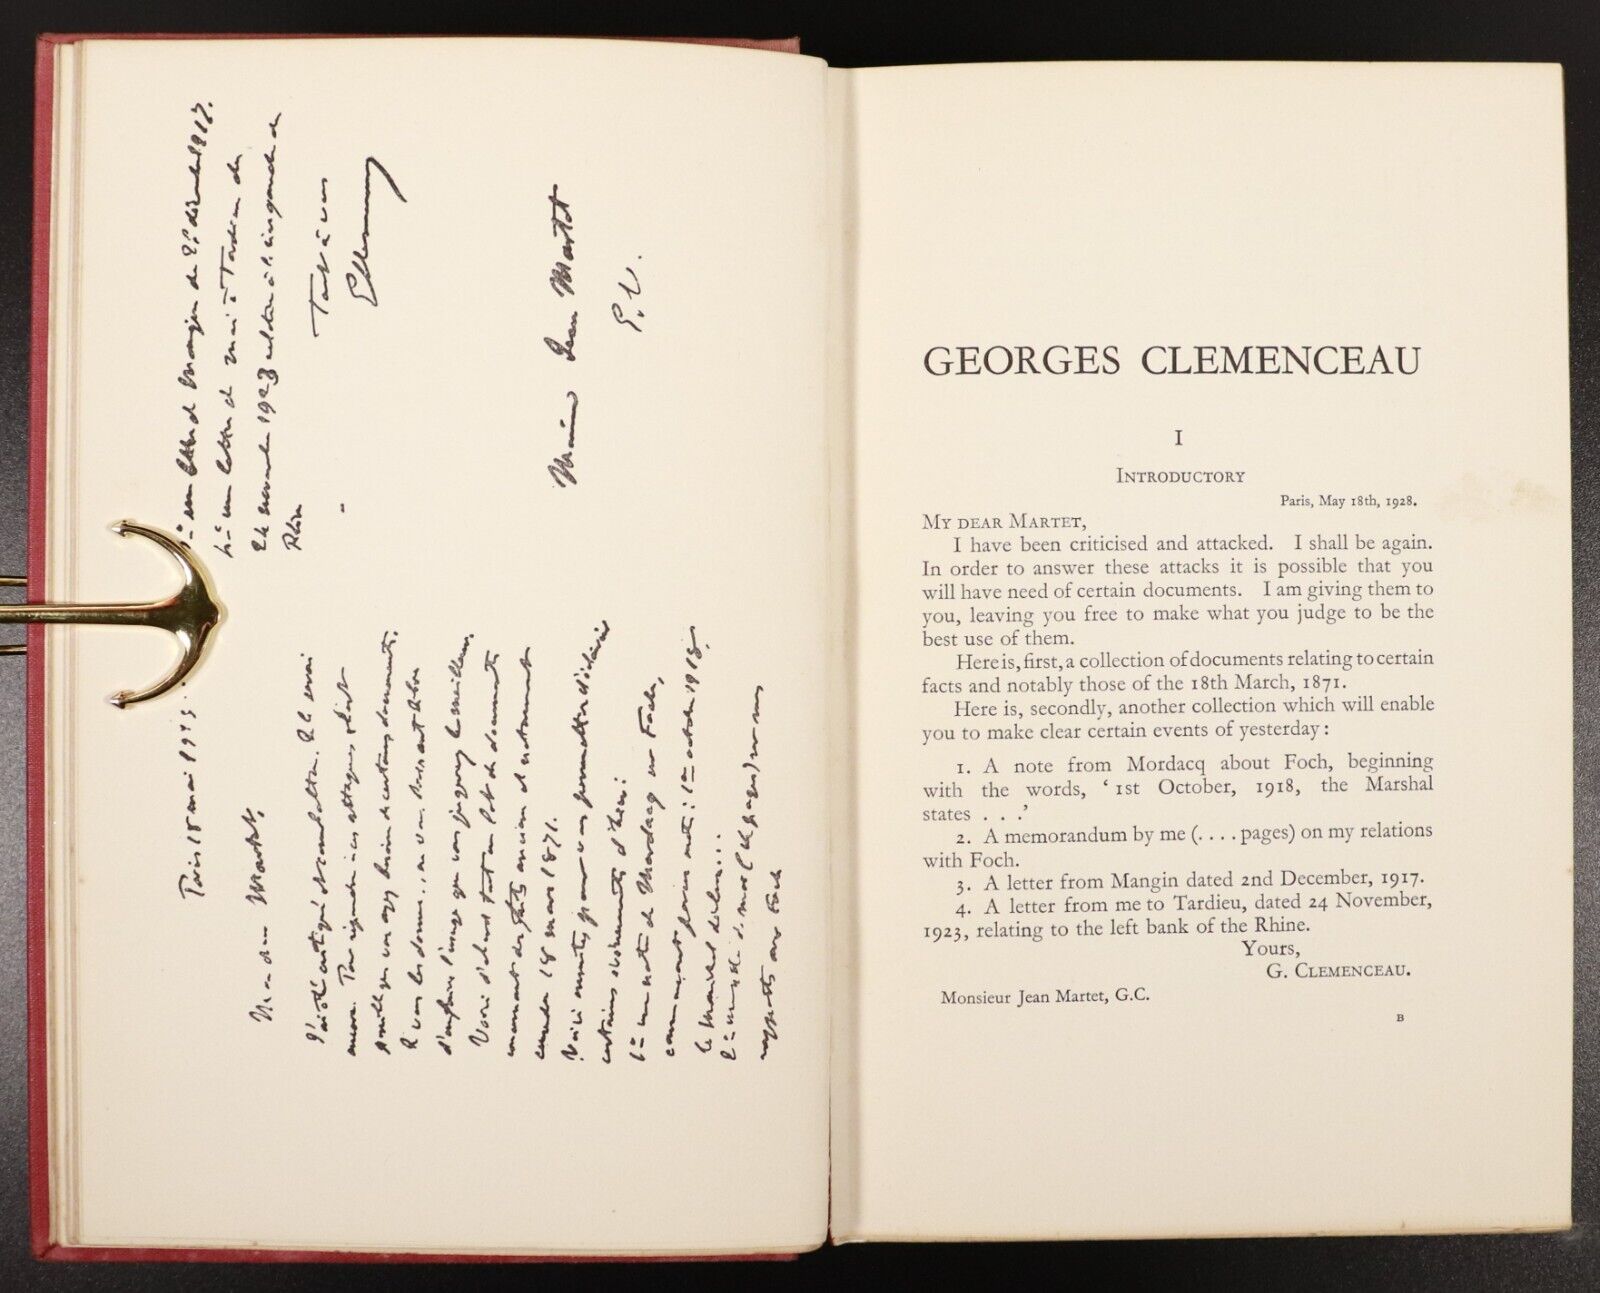 Paris 18 mai
Mon cher Martet,
J'ai été critiqué
encore. Pour répondre à ces attaques
vous ayez besoin de certains documents.
Je vous les donne
d'en faire l'usage que vous jugerez le meilleur.
Voici d'abord tout un lot de documents
concernant des faits anciens et notamment
ceux du 18 mars 1871.
Voici ensuite, pour vous permettre d'éclairer
certains événements d'hier :
1° une note de Mordacq sur Foch,
commençant par ces mots : 1er octobre 1918,
le Maréchal déclare...
2° de moi pages) sur mes
rapports avec Foch
3° une lettre de Mangin du 2 décembre 1917.
4° une lettre de moi à Tardieu du
24 novembre 1923 relative à la rive gauche du
Rhin
Tout à vous
GClemenceau
Monsieur Jean Martet
G.C.
GEORGES CLEMENCEAU
I
INTRODUCTORY
Paris, May 18th, 1928.
MY DEAR MARTET,
I have been criticised and attacked. I shall be again.
In order to answer these attacks it is possible that you
will have need of certain documents. I am giving them to
you, leaving you free to make what you judge to be the
best use of them.
Here is, first, a collection of documents relating to certain
facts and notably those of the 18th March, 1871.
Here is, secondly, another collection which will enable
you to make clear certain events of yesterday :
1. A note from Mordacq about Foch, beginning
with the words, ‘ 1st October, 1918, the Marshal
states . . .’
2. A memorandum by me (. . . . pages) on my relations
with Foch.
3. A letter from Mangin dated 2nd December, 1917.
4. A letter from me to Tardieu, dated 24 November,
1923, relating to the left bank of the Rhine.
Yours,
G. CLEMENCEAU.
Monsieur Jean Martet, G.C.
B